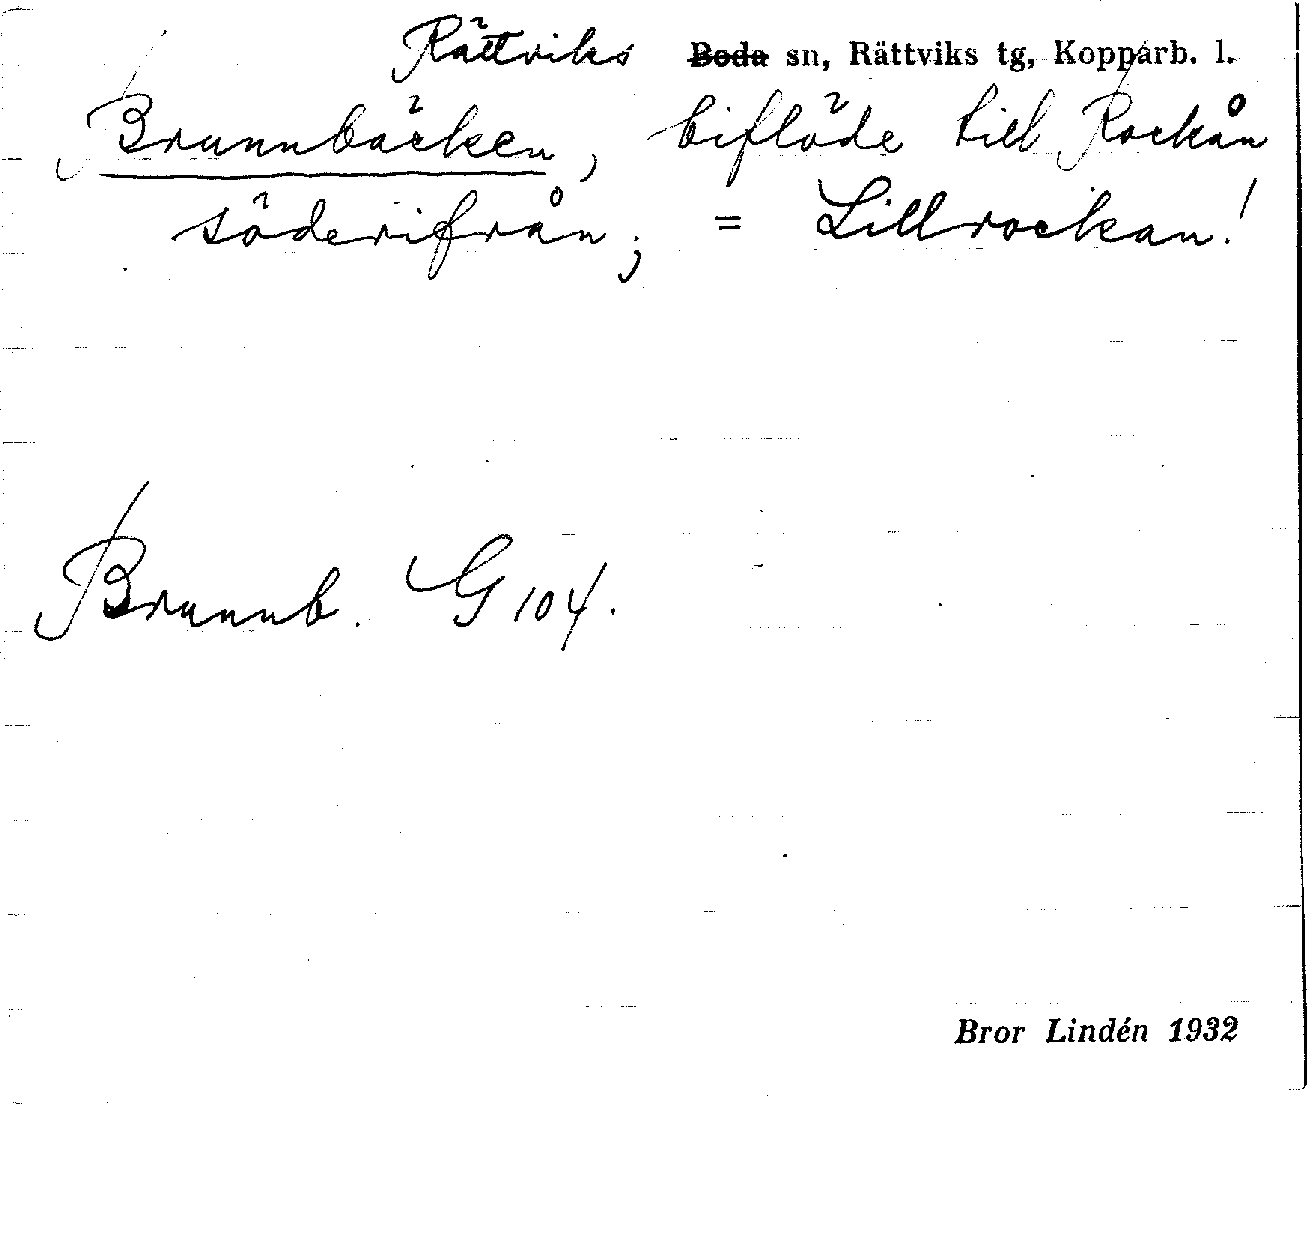 Rättviks Boda sn, Rättviks tg, Kopparb. l.
Brunnbäcken, biflöde till Rockån
söderifrån; = Lillrockan!
Brunnb. G 104.
Bror Lindén 1932